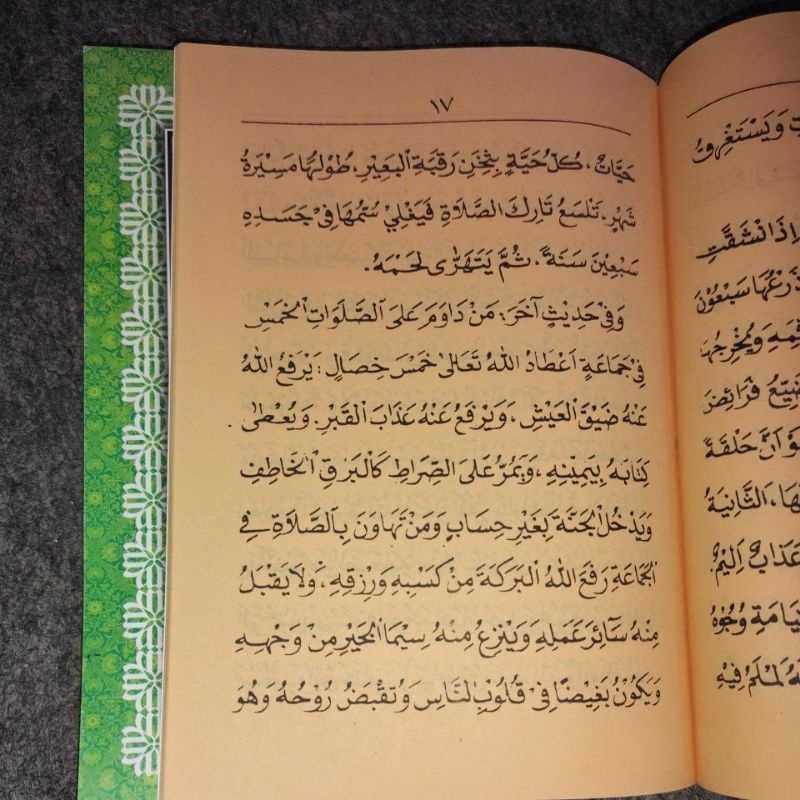 ١٧
حَيَّاتٌ، كُلُّ حَيَّةٍ بِثِخَنِ رَقَبَةِ الْبَعِيْرِ، طُوْلُهَا مَسِيْرَةُ
شَهْرٍ. تَلْسَعُ تَارِكَ الصَّلَاةِ فَيَغْلِي سُمُّهَا فِيْ جَسَدِهِ
سَبْعِيْنَ سَنَةً، ثُمَّ يَتَهَرَّى لَحْمُهُ.
وَفِيْ حَدِيْثٍ آخَرَ: مَنْ دَاوَمَ عَلَى الصَّلَوَاتِ الْخَمْسِ
فِيْ جَمَاعَةٍ اَعْطَاهُ اللهُ تَعَالَى خَمْسَ خِصَالٍ: يَرْفَعُ اللهُ
عَنْهُ ضَيْقَ الْعَيْشِ، وَيَرْفَعُ عَنْهُ عَذَابَ الْقَبْرِ. وَيُعْطَى
كِتَابَهُ بِيَمِيْنِهِ، وَيَمُرُّ عَلَى الصِّرَاطِ كَالْبَرْقِ الْخَاطِفِ
وَيَدْخُلُ الْجَنَّةَ بِغَيْرِ حِسَابٍ وَمَنْ تَهَاوَنَ بِالصَّلَاةِ فِي
الْجَمَاعَةِ رَفَعَ اللهُ الْبَرَكَةَ مِنْ كَسْبِهِ وَرِزْقِهِ، وَلَا يَقْبَلُ
مِنْهُ سَآئِرَ عَمَلِهِ وَيَنْزِعُ مِنْهُ سِيْمَا الْخَيْرِ مِنْ وَجْهِهِ
وَيَكُوْنُ بَغِيْضًا فِيْ قُلُوْبِ النَّاسِ وَتُقْبَضُ رُوْحُهُ وَهُوَ
وَيَسْتَغْرِقُ
اِذَا انْشَقَّتِ
ذَرْعُهَا سَبْعُوْنَ
فَمِهِ وَيُخْرِجُهَا
ضَيِّعُ فَرَائِضَ
وْ اَنَّ حَلْقَةً
هَا، الثَّانِيَةُ
عَذَابٌ اَلِيْمٌ.
يَامَةِ وُجُوْهُ
لَمْلَمُ فِيْهِ